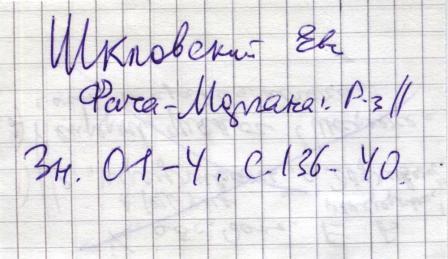 Шкловский Евг
Фата-Моргана: Р-з //
Зн. 01-4. С.136-40.